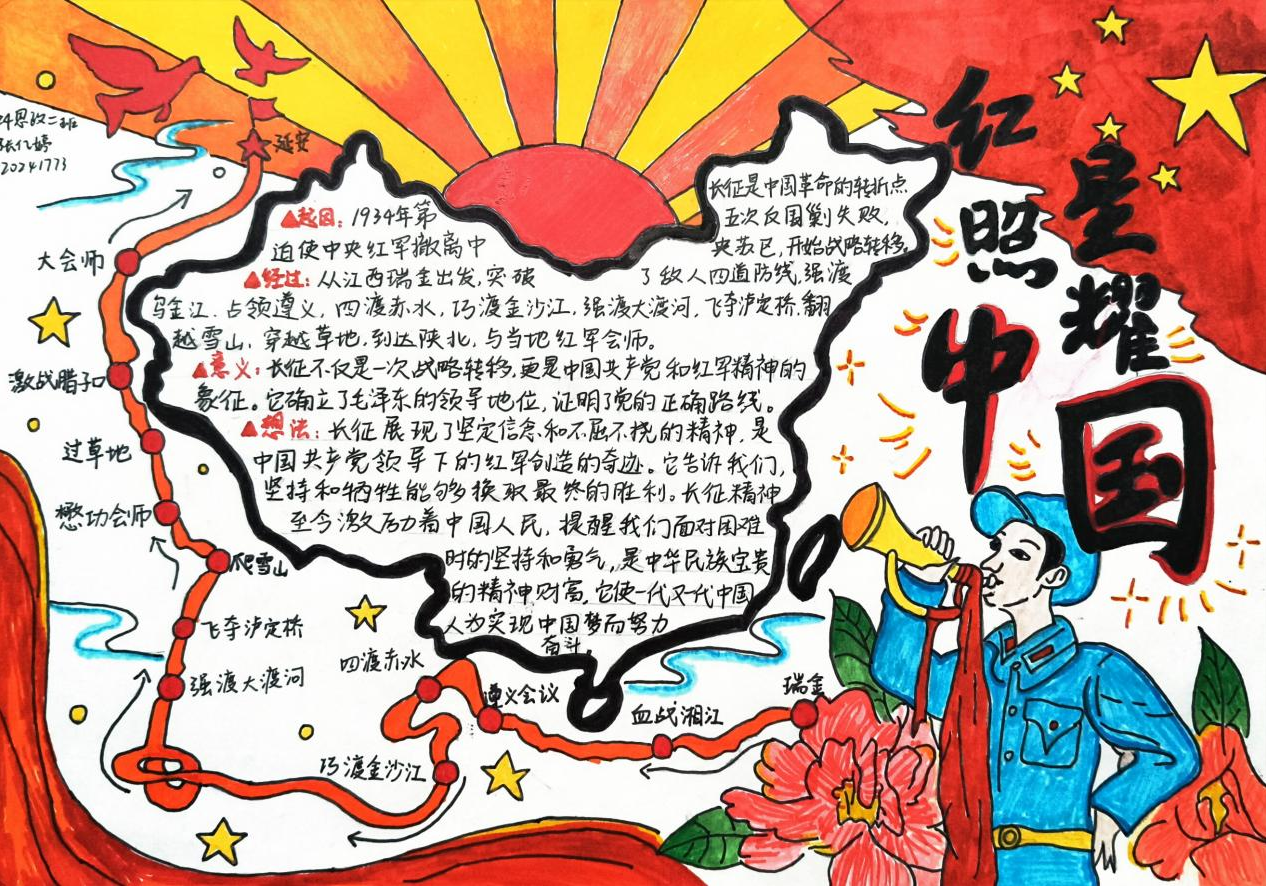 红星照耀中国
24思政二班
张亿婷
20241773
延安
大会师
激战腊子口
过草地
懋功会师
爬雪山
飞夺泸定桥
强渡大渡河
四渡赤水
巧渡金沙江
遵义会议
血战湘江
瑞金
长征是中国革命的转折点
▲起因：1934年第五次反围剿失败，
迫使中央红军撤离中央苏区，开始战略转移。
▲经过：从江西瑞金出发，突破了敌人四道防线，强渡
乌金江、占领遵义，四渡赤水，巧渡金沙江，强渡大渡河，飞夺泸定桥，翻
越雪山，穿越草地，到达陕北，与当地红军会师。
▲意义：长征不仅是一次战略转移，更是中国共产党和红军精神的
象征。它确立了毛泽东的领导地位，证明了党的正确路线。
▲想法：长征展现了坚定信念和不屈不挠的精神，是
中国共产党领导下的红军创造的奇迹。它告诉我们，
坚持和牺牲能够换取最终的胜利。长征精神
至今激励着中国人民，提醒我们面对困难
时的坚持和勇气，是中华民族宝贵
的精神财富，它使一代又一代中国
人为实现中国梦而努力
奋斗。